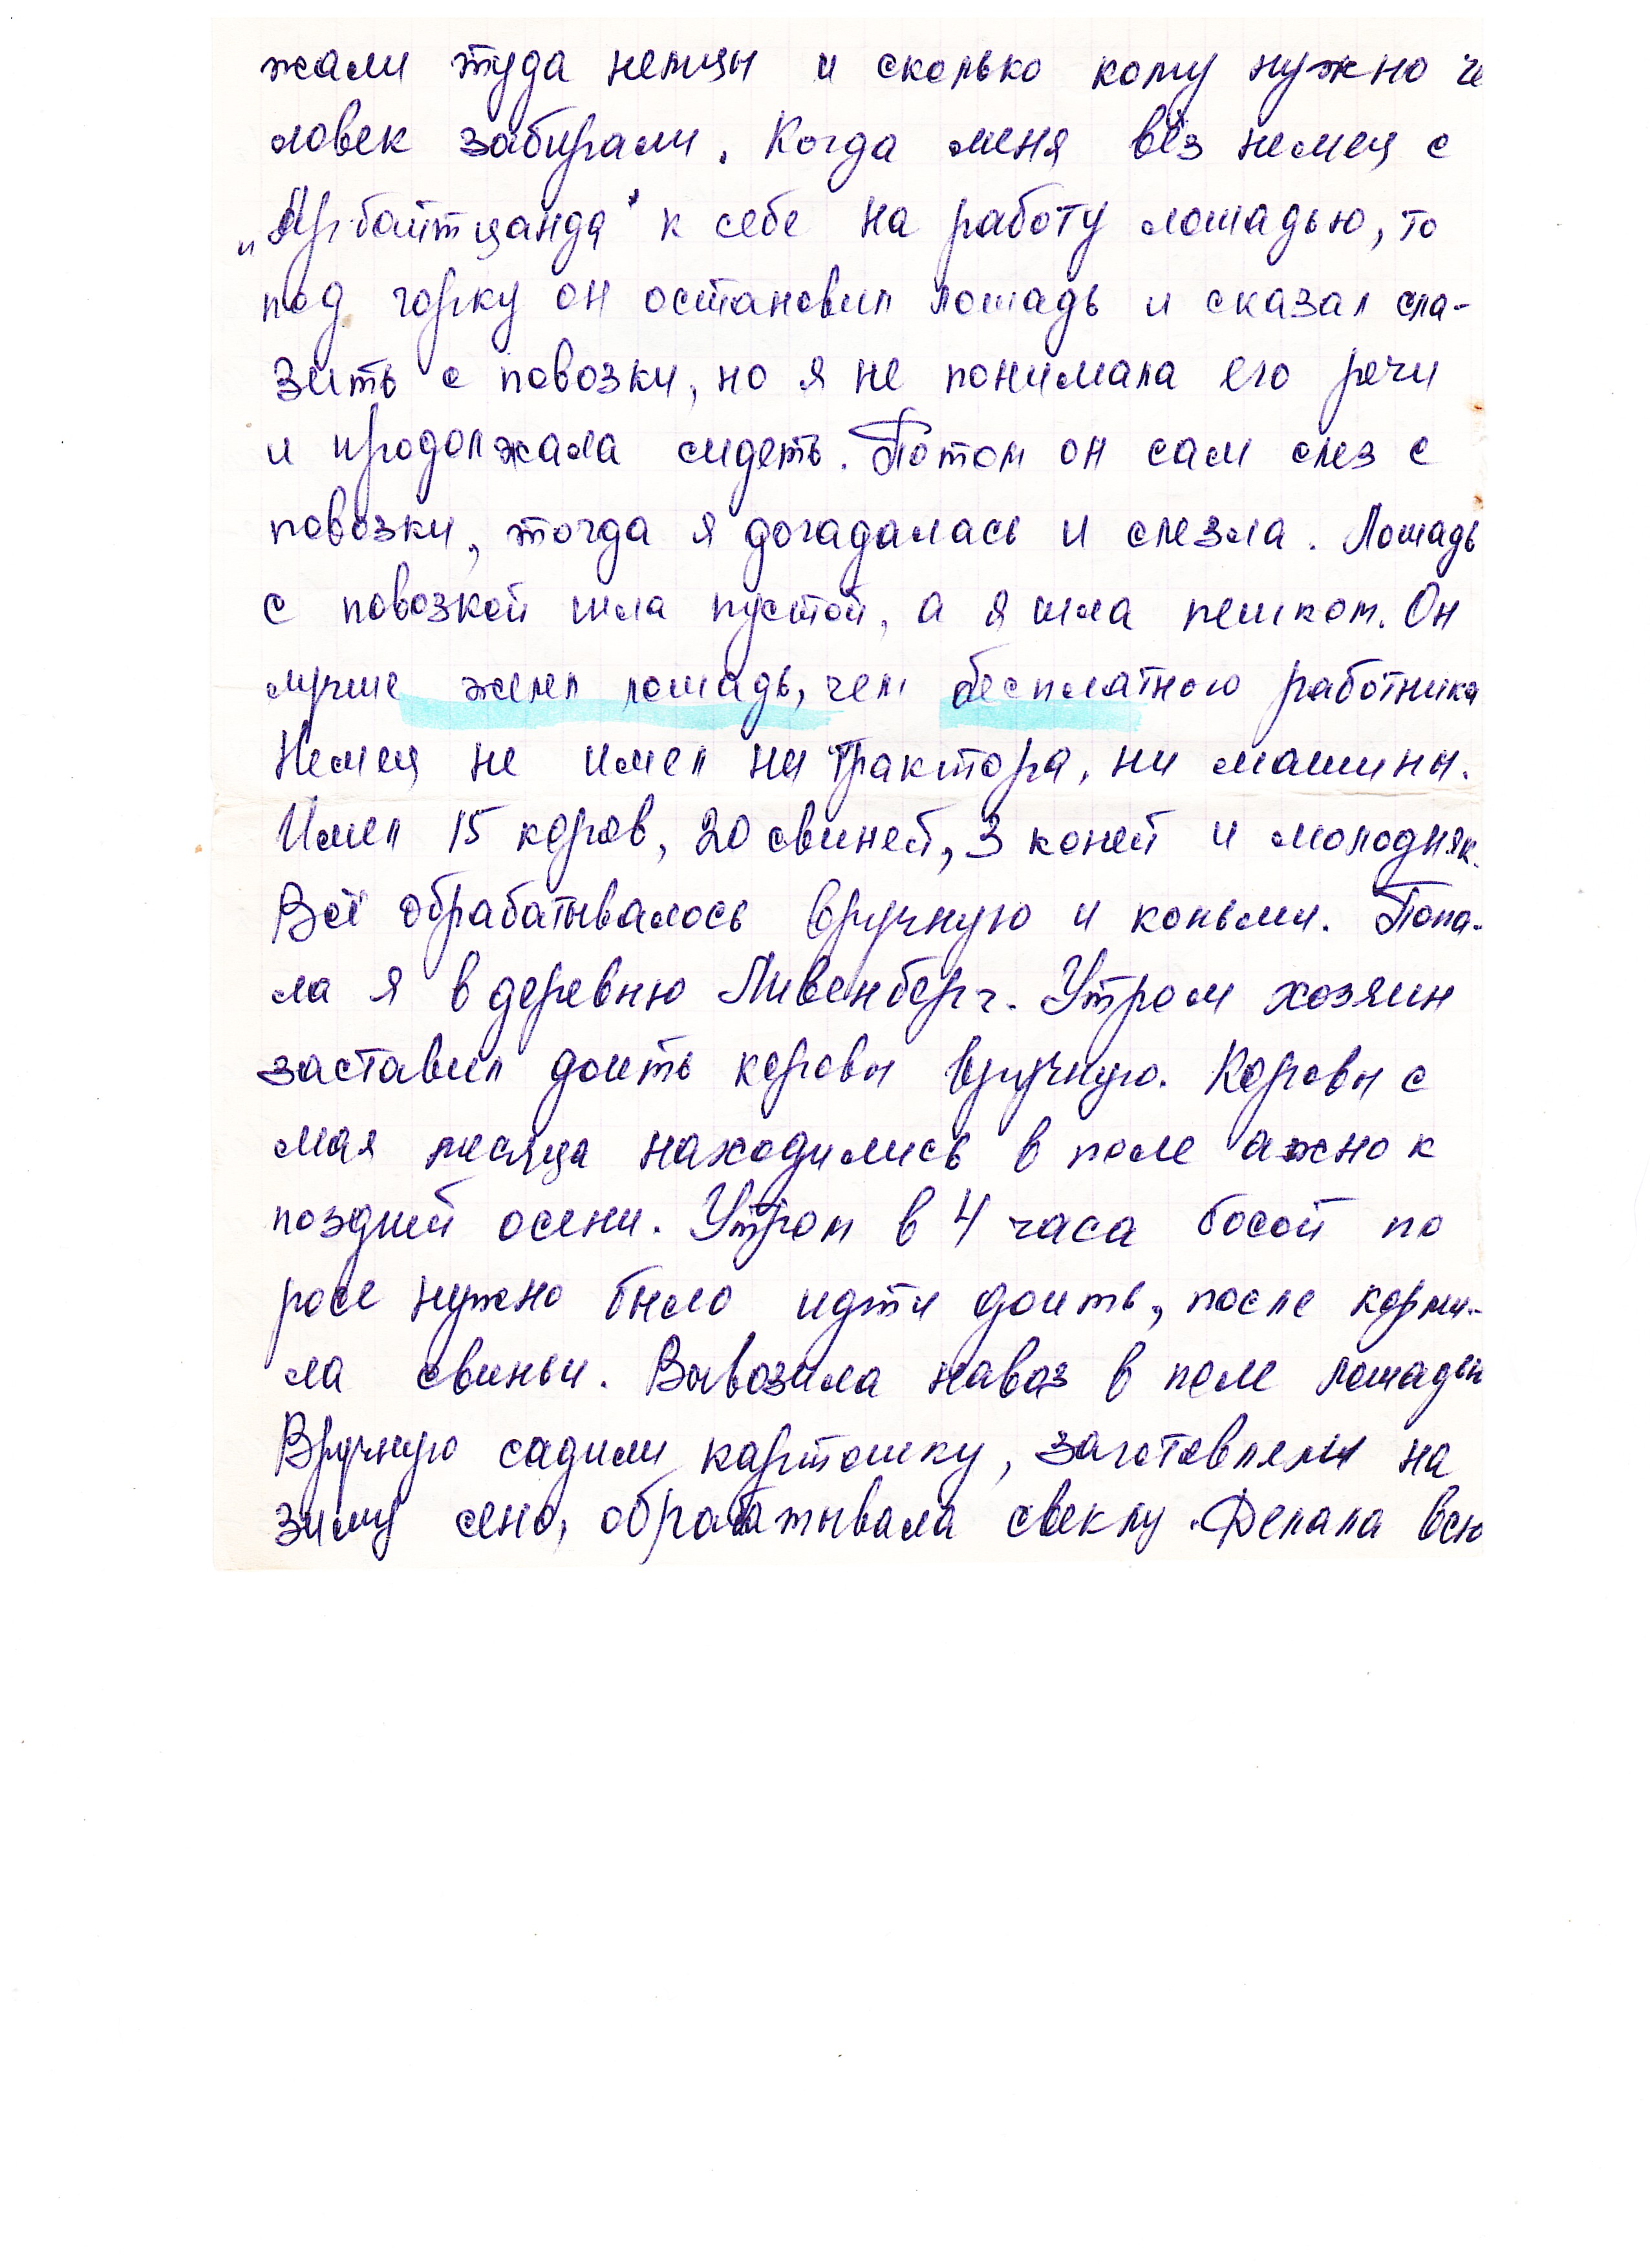 жали туда немцы и сколько кому нужно че
ловек забирали. Когда меня вёз немец с
„Арбайтцанда" к себе на работу лошадью, то
под горку он остановил лошадь и сказал сла-
зить с повозки, но я не понимала его речи
и продолжала сидеть. Потом он сам слез с
повозки, тогда я догадалась и слезла. Лошадь
с повозкой шла пустой, а я шла пешком. Он
лучше жалел лошадь, чем бесплатного работника
Немец не имел ни трактора, ни машины.
Имел 15 коров, 20 свиней, 3 коней и молодняк.
Всё обрабатывалось вручную и коньми. Попа-
ла я в деревню Ливенберг. Утром хозяин
заставил доить коровы вручную. Коровы с
мая месяца находились в поле ажно к
поздней осени. Утром в 4 часа босой по
росе нужно было идти доить, после корми-
ла свиньи. Вывозила навоз в поле лошадьи
Вручную садили картошку, заготовляли на
зиму сено, обрабатывала свеклу. Делала всю